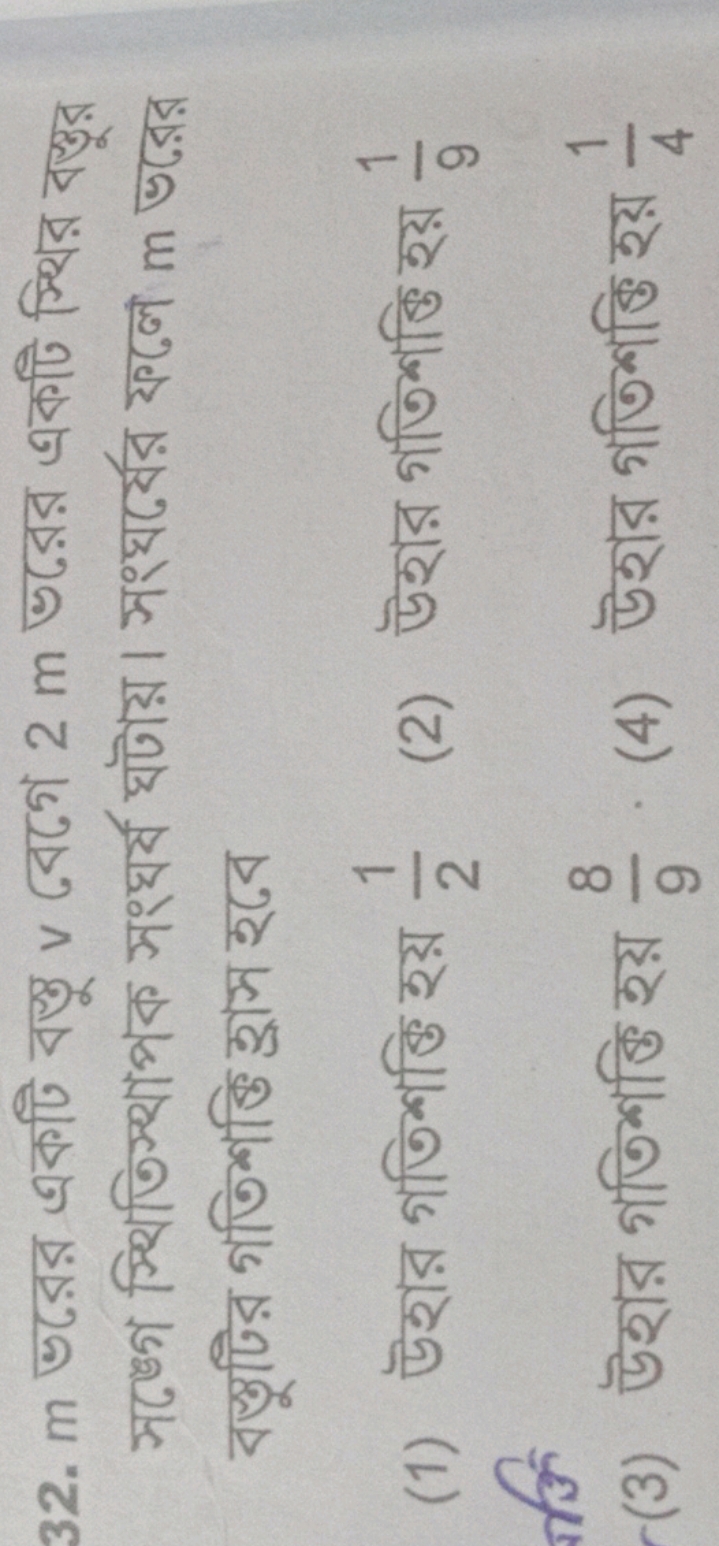 32. m ভরের একটি বস্তু v বেগে 2 m ভরের একটি স্থির বস্তুর
সঙ্গে স্থিতিস্থাপক সংঘর্ষ ঘটায়। সংঘর্ষের ফলে m ভরের
বস্তুটির গতিশক্তি হ্রাস হবে
(1) উহার গতিশক্তি হয় 1/2 (2) উহার গতিশক্তি হয় 1/9
(3) উহার গতিশক্তি হয় 8/9 (4) উহার গতিশক্তি হয় 1/4